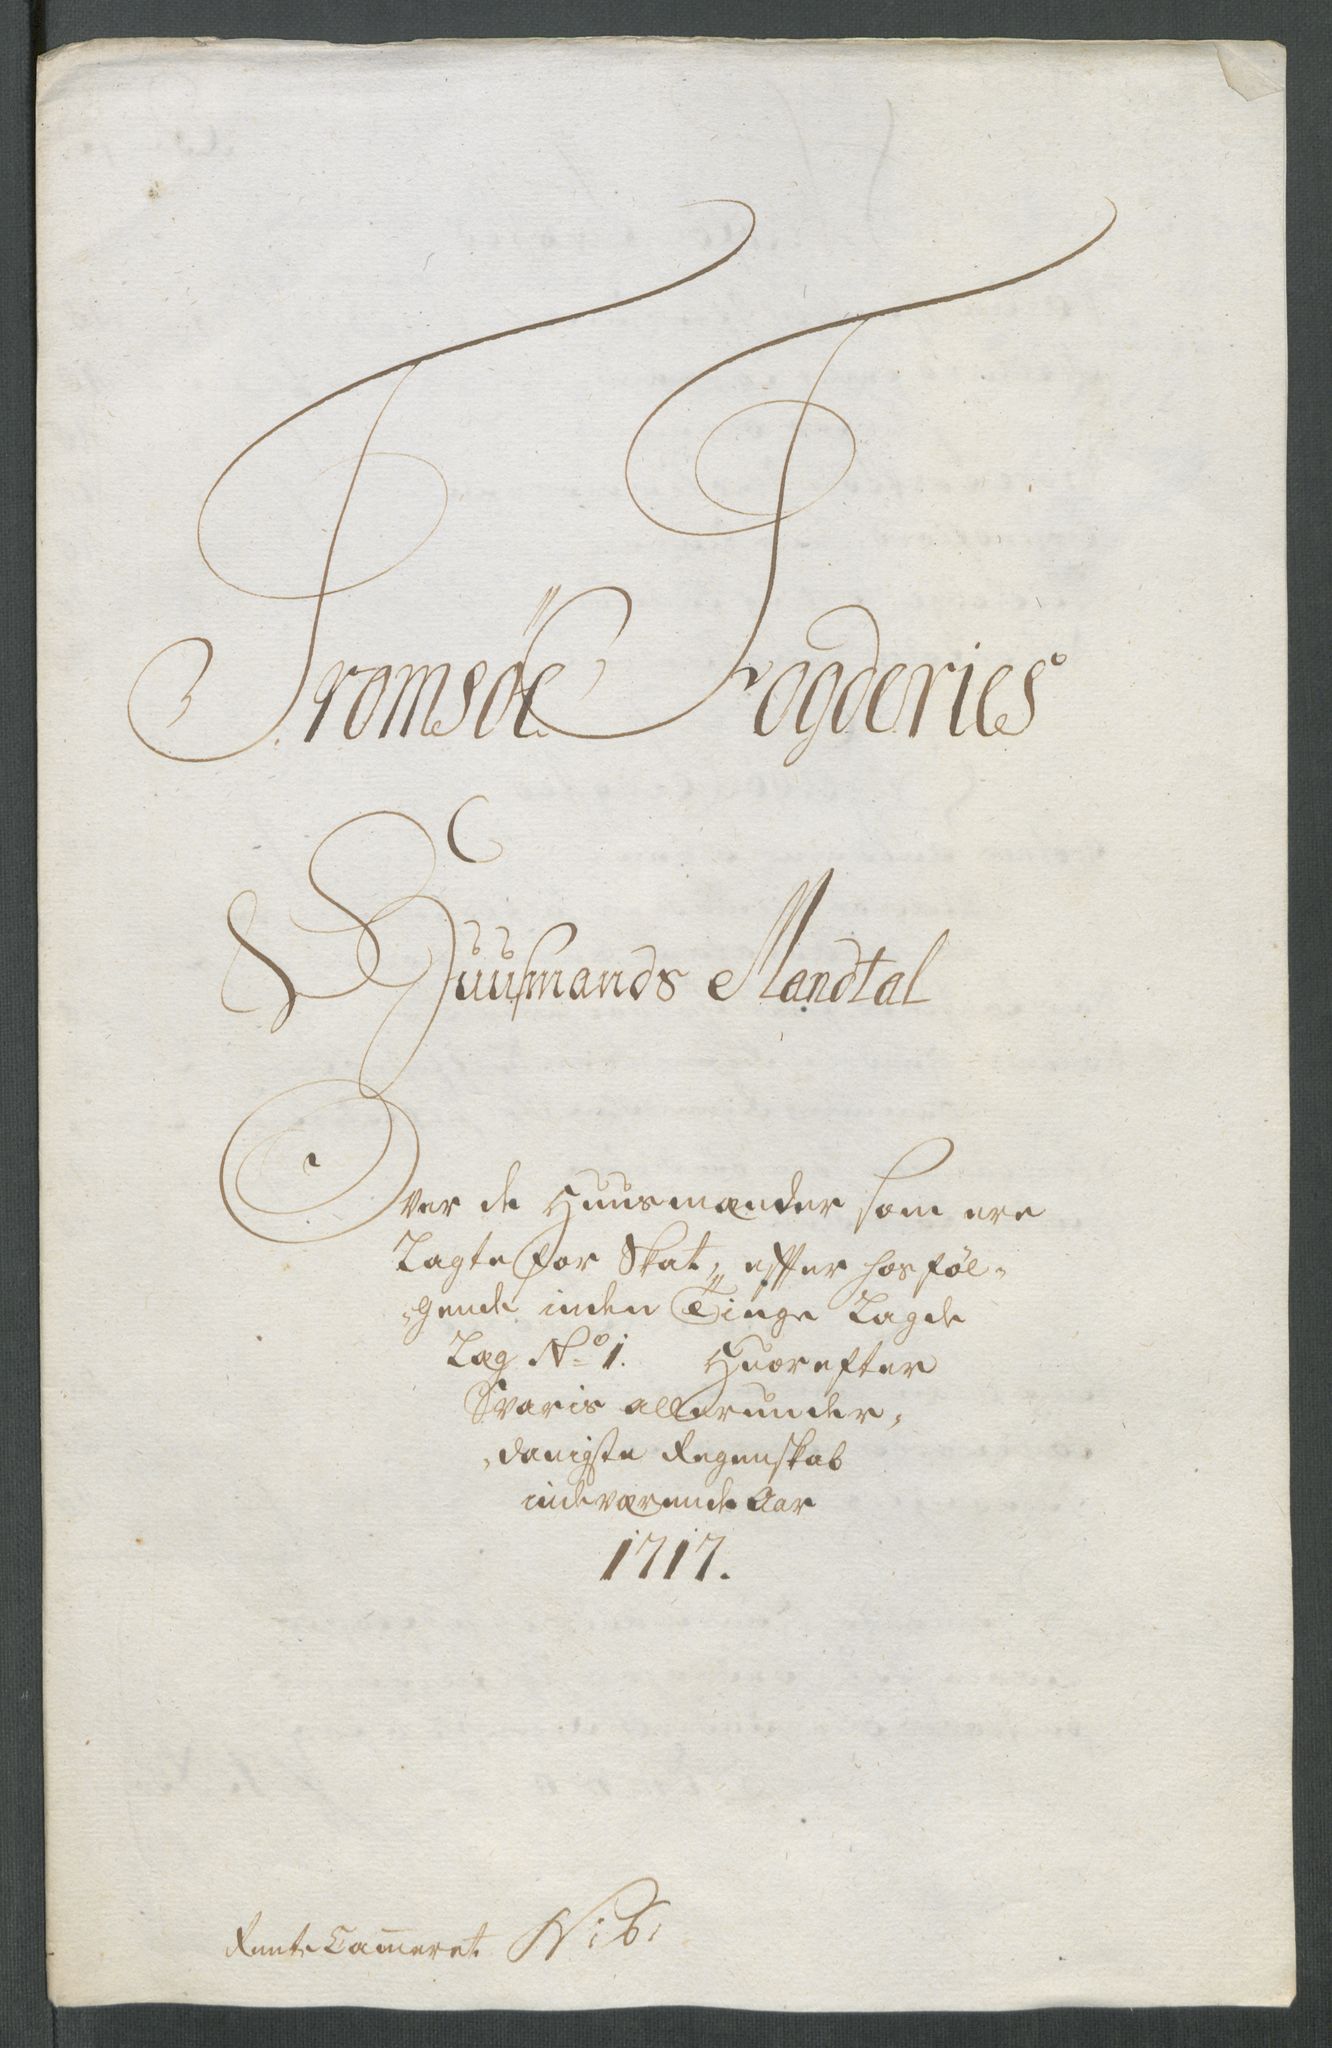 Tromsöe Fogderies
Huusmands Mandtal
Over de Huusmænder som ere
Lagte for Skat, effter hosføl-
gende inden Tinge Lagde
Lag No 1. Huorefter
Svaris allerunder,
,danigste Regenskab
indeværende Aar
1717.
Rente Cam̄eret N: 6: